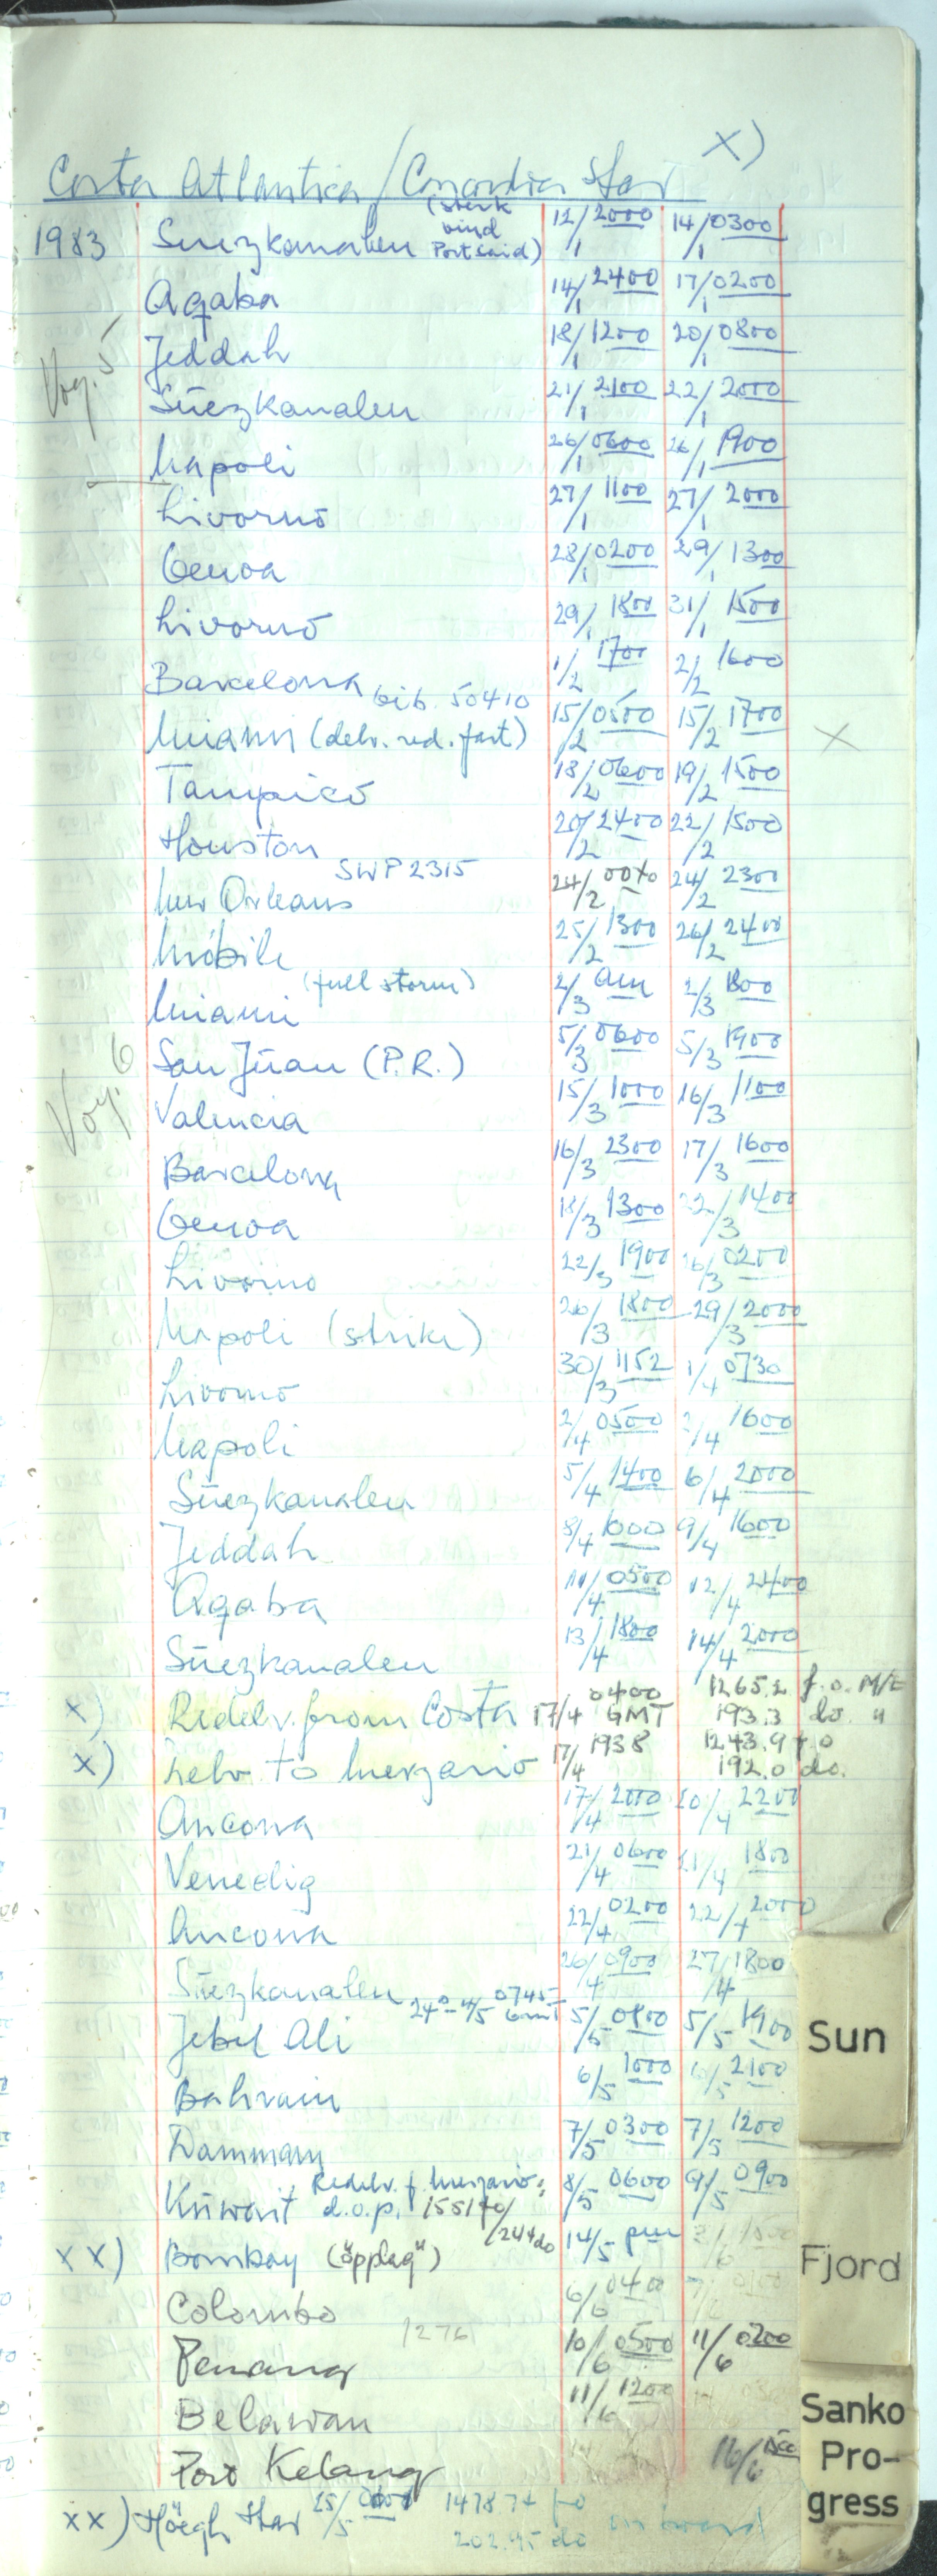 x)
Costa Atlantica / Concordia Star
(sterk
vind
Port Said)
1983 Suezkanalen 12/1 2000 14/1 0300
Aqaba 14/1 2400 17/1 0200
Voy. 5
Jeddah 18/1 1200 20/1 0800
Suezkanalen 21/1 2100 22/1 2000
Napoli 26/1 0600 26/1 1900
Livorno 27/1 1100 27/1 2000
Genoa 28/1 0200 29/1 1300
Livorno 29/1 1800 31/1 1500
Barcelona 1/2 1700 2/2 1600
Gib. 50410
Miami (delv. red. fart) 15/2 0500 15/2 1700 x
Tampico 18/2 0600 19/2 1500
Houston 20/2 2400 22/2 1500
SWP 2315
New Orleans 24/2 24/2 2300
Mobile 25/2 1300 26/2 2400
(full storm)
Miami 2/3 am 2/3 1800
Voy. 6
San Juan (P.R.) 5/3 0600 5/3 1900
Valencia 15/3 1000 16/3 1100
Barcelona 16/3 2300 17/3 1600
Genoa 18/3 1300 22/3 1400
Livorno 22/3 1900 26/3 0200
Napoli (strike) 26/3 1800 29/3 2000
Livorno 30/3 1152 1/4 0730
Napoli 2/4 0500 2/4 1600
Suezkanalen 5/4 1400 6/4 2000
Jeddah 8/4 1000 9/4 1600
Aqaba 11/4 0500 12/4 2400
Suezkanalen 13/4 1800 14/4 2000
x) Redelv. from Costa 17/4 0400 GMT 1265.2 f.o. M/E
193.3 do. "
x) Delv. to Merzario 17/4 1938 1243.9 f.o
192.0 do.
Ancona 17/4 2000 20/4 2200
Venedig 21/4 0600 21/4 1800
Ancona 22/4 0200 22/4 2000
Suezkanalen 26/4 0900 27/4 1800
24° 4/5 0745 GMT
Jebel Ali 5/5 0800 5/5 1900
Bahrain 6/5 1000 6/5 2100
Dammam 7/5 0300 7/5 1200
Redelv. f. Merzario:
Kuwait d.o.p. 8/5 0600 9/5 0900
xx) Bombay ("opplag") 14/5 pm
Colombo 6/6 0400
1276
Penang 10/6 0500 11/6 0200
Belawan 11/6 1200
Port Kelang 16/6
xx) Höegh Star 25/5 fo
202.95 do on board
Sun
Fjord
Sanko
Pro-
gress